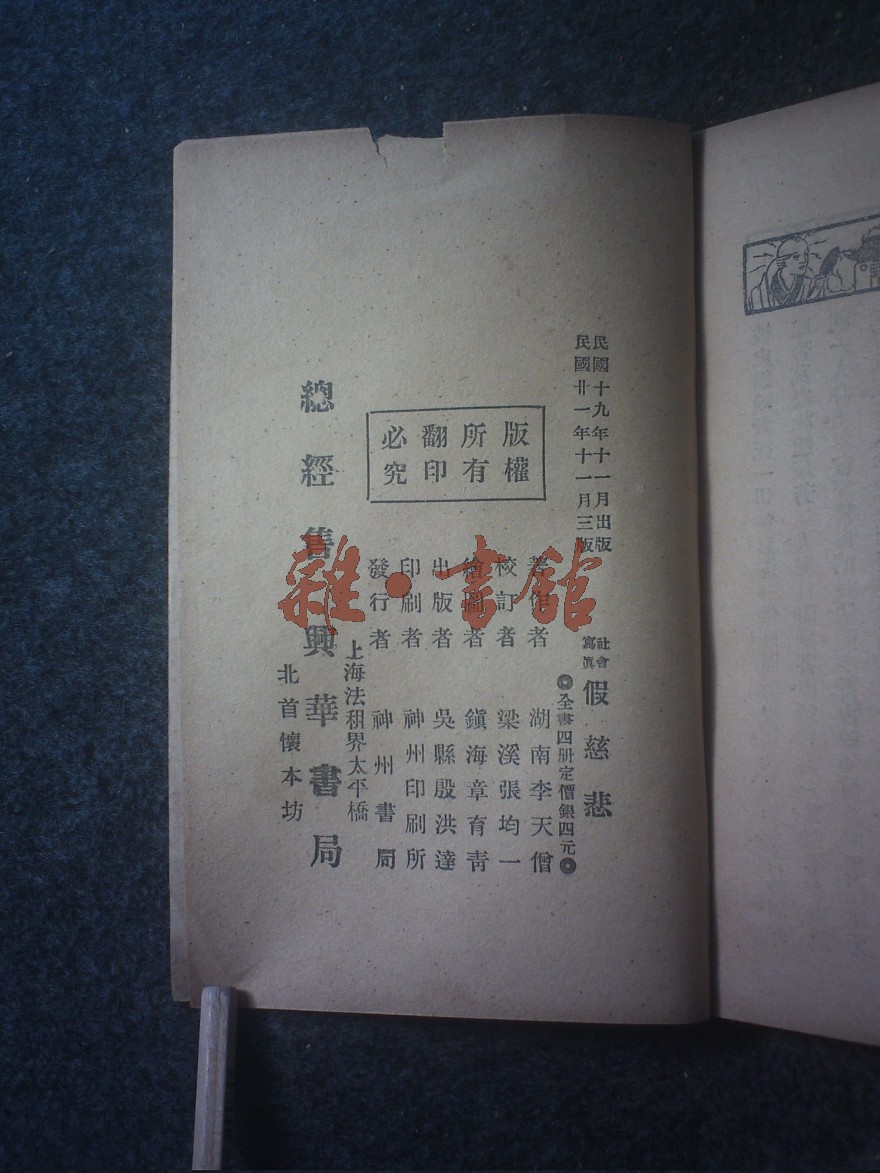 民國十九年十一月出版
民國廿一年十一月三版
社會
寫眞
假慈悲
◎全書四册定價銀四元◎
版權
所有
翻印
必究
著作者 湖南李天僧
校訂者 梁溪張均一
繪圖者 鎭海章育靑
出版者 吳縣殷洪達
印刷者 神州印刷所
發行者 神州書局
上海法租界太平橋
總經售興華書局
北首懷本坊
雜·書館